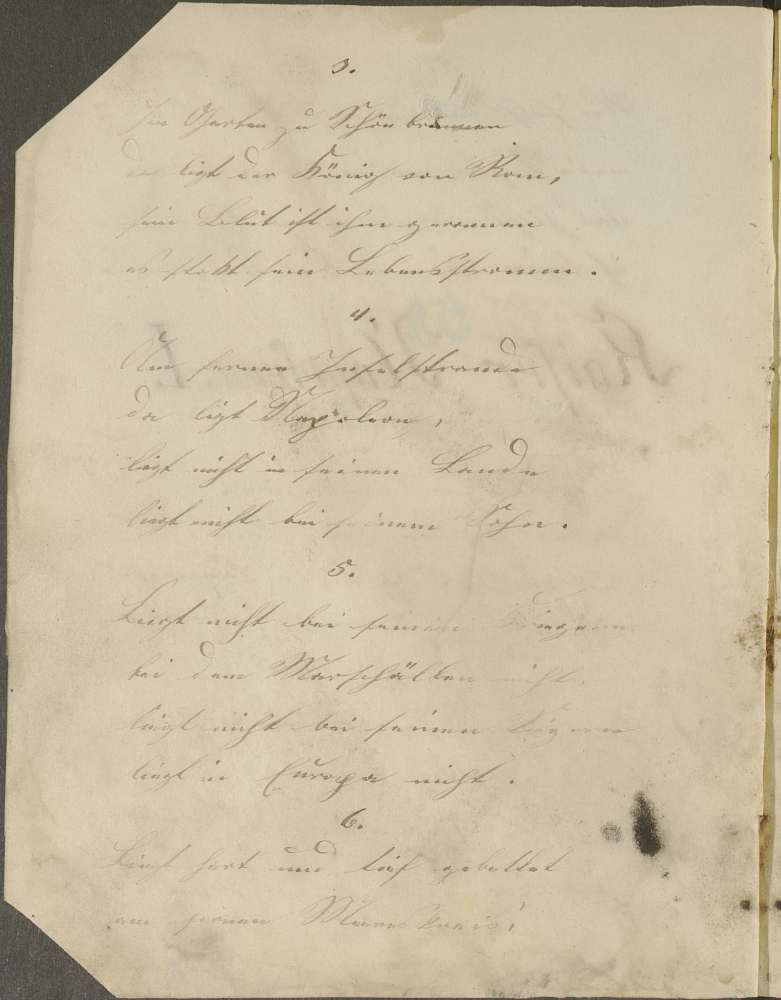 3.
Im Garten zu Schönbrunnen
da ligt der König von Rom,
sein Blut ist ihm geronnen
es stokt sein Lebensstromm.
4.
Am fernen Inselstrande
da ligt Napoleon,
ligt nicht in seinen Lande
liegt nicht bei seinem Sohn.
5.
Liegt nicht bei seinen Kriegern
bei den Marschällen nicht,
liegt nicht bei seinen
liegt in Europa nicht.
6.
Liegt hart und tief gebettet
am fernen